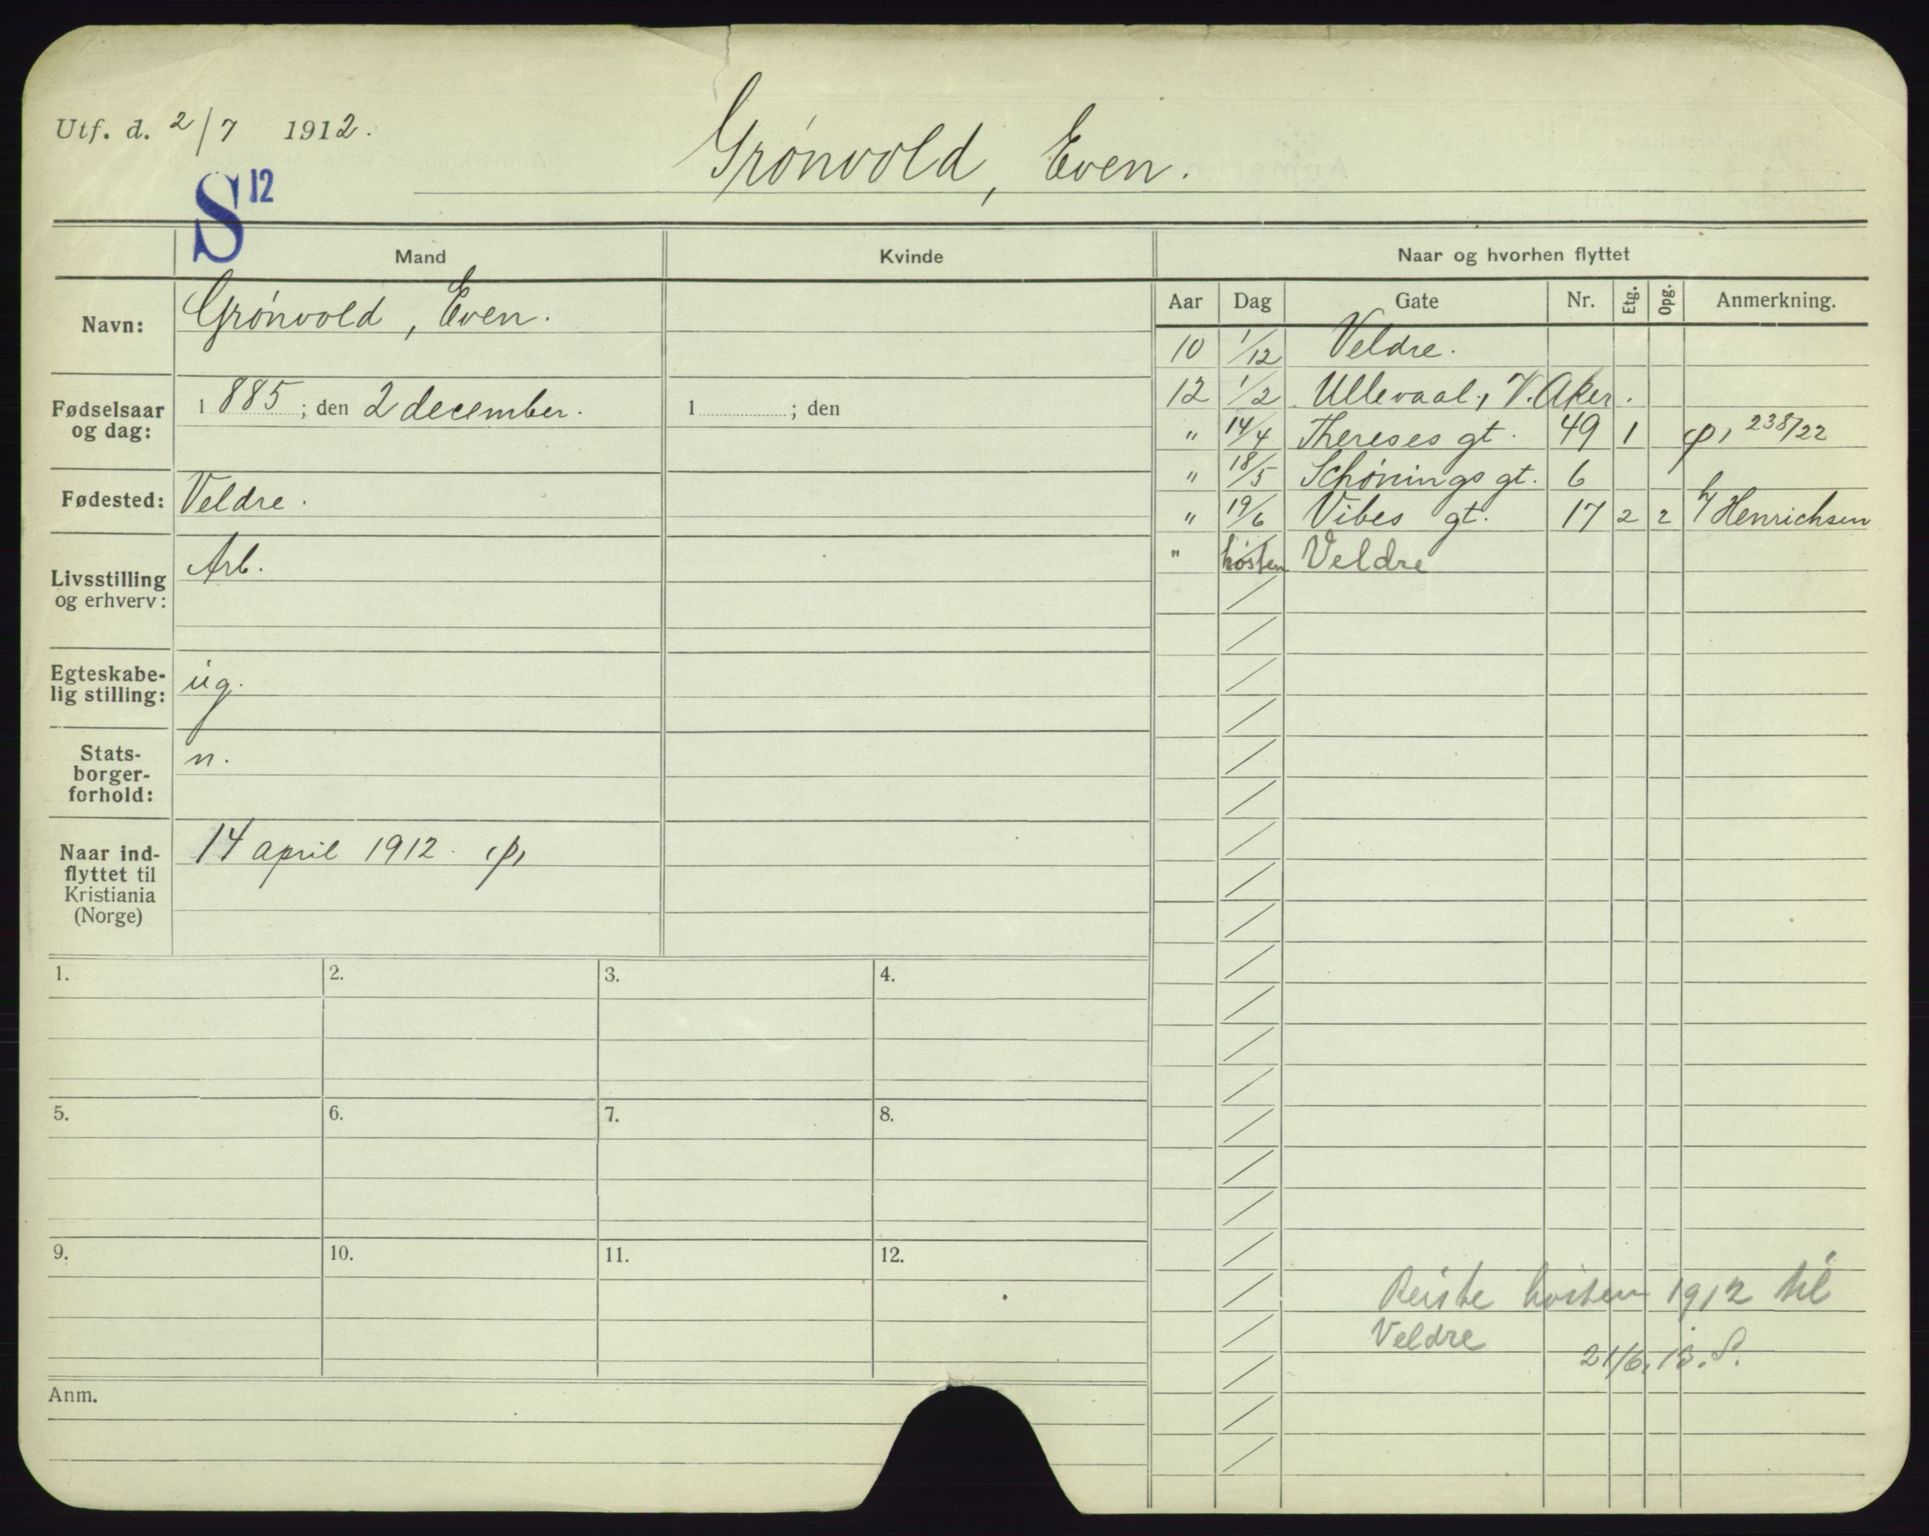 Utf. d. 2/7 1912.
Grönvold, Even.
S 12
Mand
Kvinde
Naar og hvorhen flyttet
Navn: Grönvold, Even.
Fødselsaar og dag: 1885; den 2 december.
1 ; den
Fødested: Veldre.
Livsstilling og erhverv: Arb.
Egteskabe-
lig stilling: ug.
Stats-
borger-
forhold: n.
Naar ind-
flyttet til
Kristiania
(Norge)
14 april 1912.
Aar Dag Gate Nr. Etg. Opg. Anmerkning.
10 1/12 Veldre.
12 1/2 Ullevaal, V. Aker.
" 14/4 Thereses gt. 49 1 238/22
" 18/5 Schönings gt. 6
" 19/6 Vibes gt. 17 2 2 h/ Henrichsen
" hösten Veldre
1.
2.
3.
4.
5.
6.
7.
8.
9.
10.
11.
12.
Reiste hösten 1912 til
Veldre
21/6.13. S.
Anm.